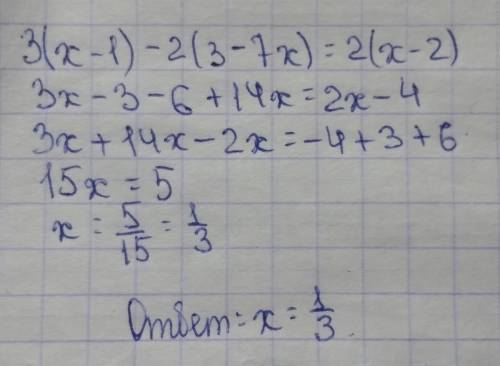 3(x-1)-2(3-7x)=2(x-2)
3x-3-6+14x=2x-4
3x+14x-2x=-4+3+6
15x=5
x=5/15=1/3
Ответ: x=1/3.